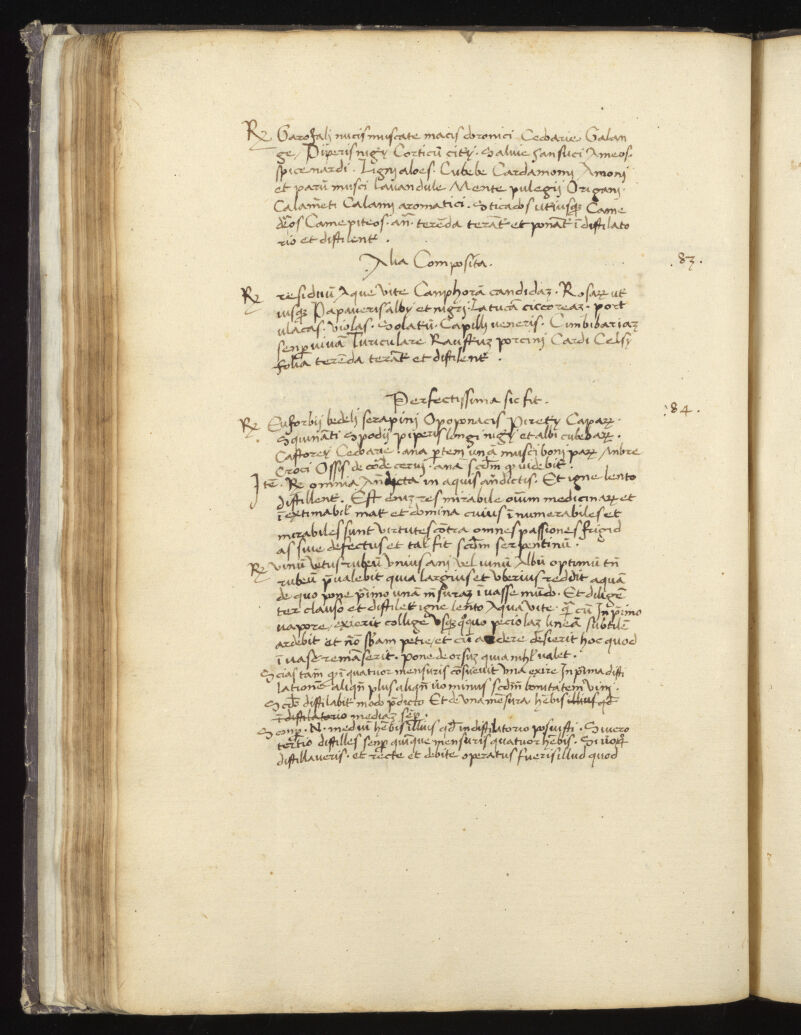 Rx Garofalj nucis muscate macis doronici Cedoarie Galan
ge, Piperis nigrj Corticū citrj. Salvie sansuci Ameos.
spice nardi. Lignj aloes. Cubebe Cardamomj Amomj
et parū musci lavandule Mente pulegij Origanj.
Calamēti Calami aromatici. Sticados utriusqȝ Came
dreos Camepiteos. añ. terēda terāt̄ et ponāt̄ ī distilato
rio et distilent̄.
Alia Composita. .83.
Rx residuū Aque vite Camphorā candidaȝ. Rosaꝝ ut
iusqȝ Papaveris albj et nigrj. Latucā cicoreaȝ. port
ulacas. violas. Solatrū. Capillj veneris. Cimbibariaȝ
semꝑvivā Auriculare porcinj Cardi Celsj
folia terēda terāt̄ et distilent̄.
Perfectissima sic fit. .84.
Rx Euforbij bedelj serapinj Opoponacis Piretrj Capaꝝ.
Squinātj Spodij piperis longi nigrj et albi cubebaꝝ.
Castorej Cedoarie. ana ꝑtem unā musci bonj paꝝ Ambre
Croci Ossis de corde cervi. ana scdm ꝙ videbit̄.
Itē. Rx omnia Andicta in aquis andictis. Et igne lento
distillent. Est enī res mirabile oīum medicinaꝝ et
īextimabil' mat̄ et domina cuius īnumerabiles et
mirabiles sunt virtutes contra omnes passiones frigid
as sive defectus et tal' fit scdm serpentinū.
Rx vinū vetus rubeū unius anj vel vinū Albū optimū tn̄
rubeū p̄valebit quia largius et uberius reddit aquā
de quo pone p̄imo unā mēsuraȝ ī vasse mūdo. Et diligē
ter clauso et distilet igne lento Aquā vite. cū In p̄imo
vapore, exierit collige usqȝ quo peciolaȝ lineā subtilē
ardebit et nō sbām petie, et cū ardere deserit hoc quod
ī vase remāserit. pone deorsuȝ quia nihil valet.
Scias tam̄ qn̄ quatuor mensuris cōsuevit una exire In p̄ima disti
latione aliqn̄ plus aliqn̄ vo minus scdm bonitatem vinj.
Scd̄o distillabit modo p̄dicto Et de una mēsura hēbis illius qd̄
ī distilatorio mediaȝ semꝑ.
Semꝑ. N. mediū hēbis illius qd̄ in distilatorio posuisti. Si vero
tertio distilles semꝑ quinque mensuris quatuor hēbis. Si
distillaveris. et recte et debite operatus fueris illud quod